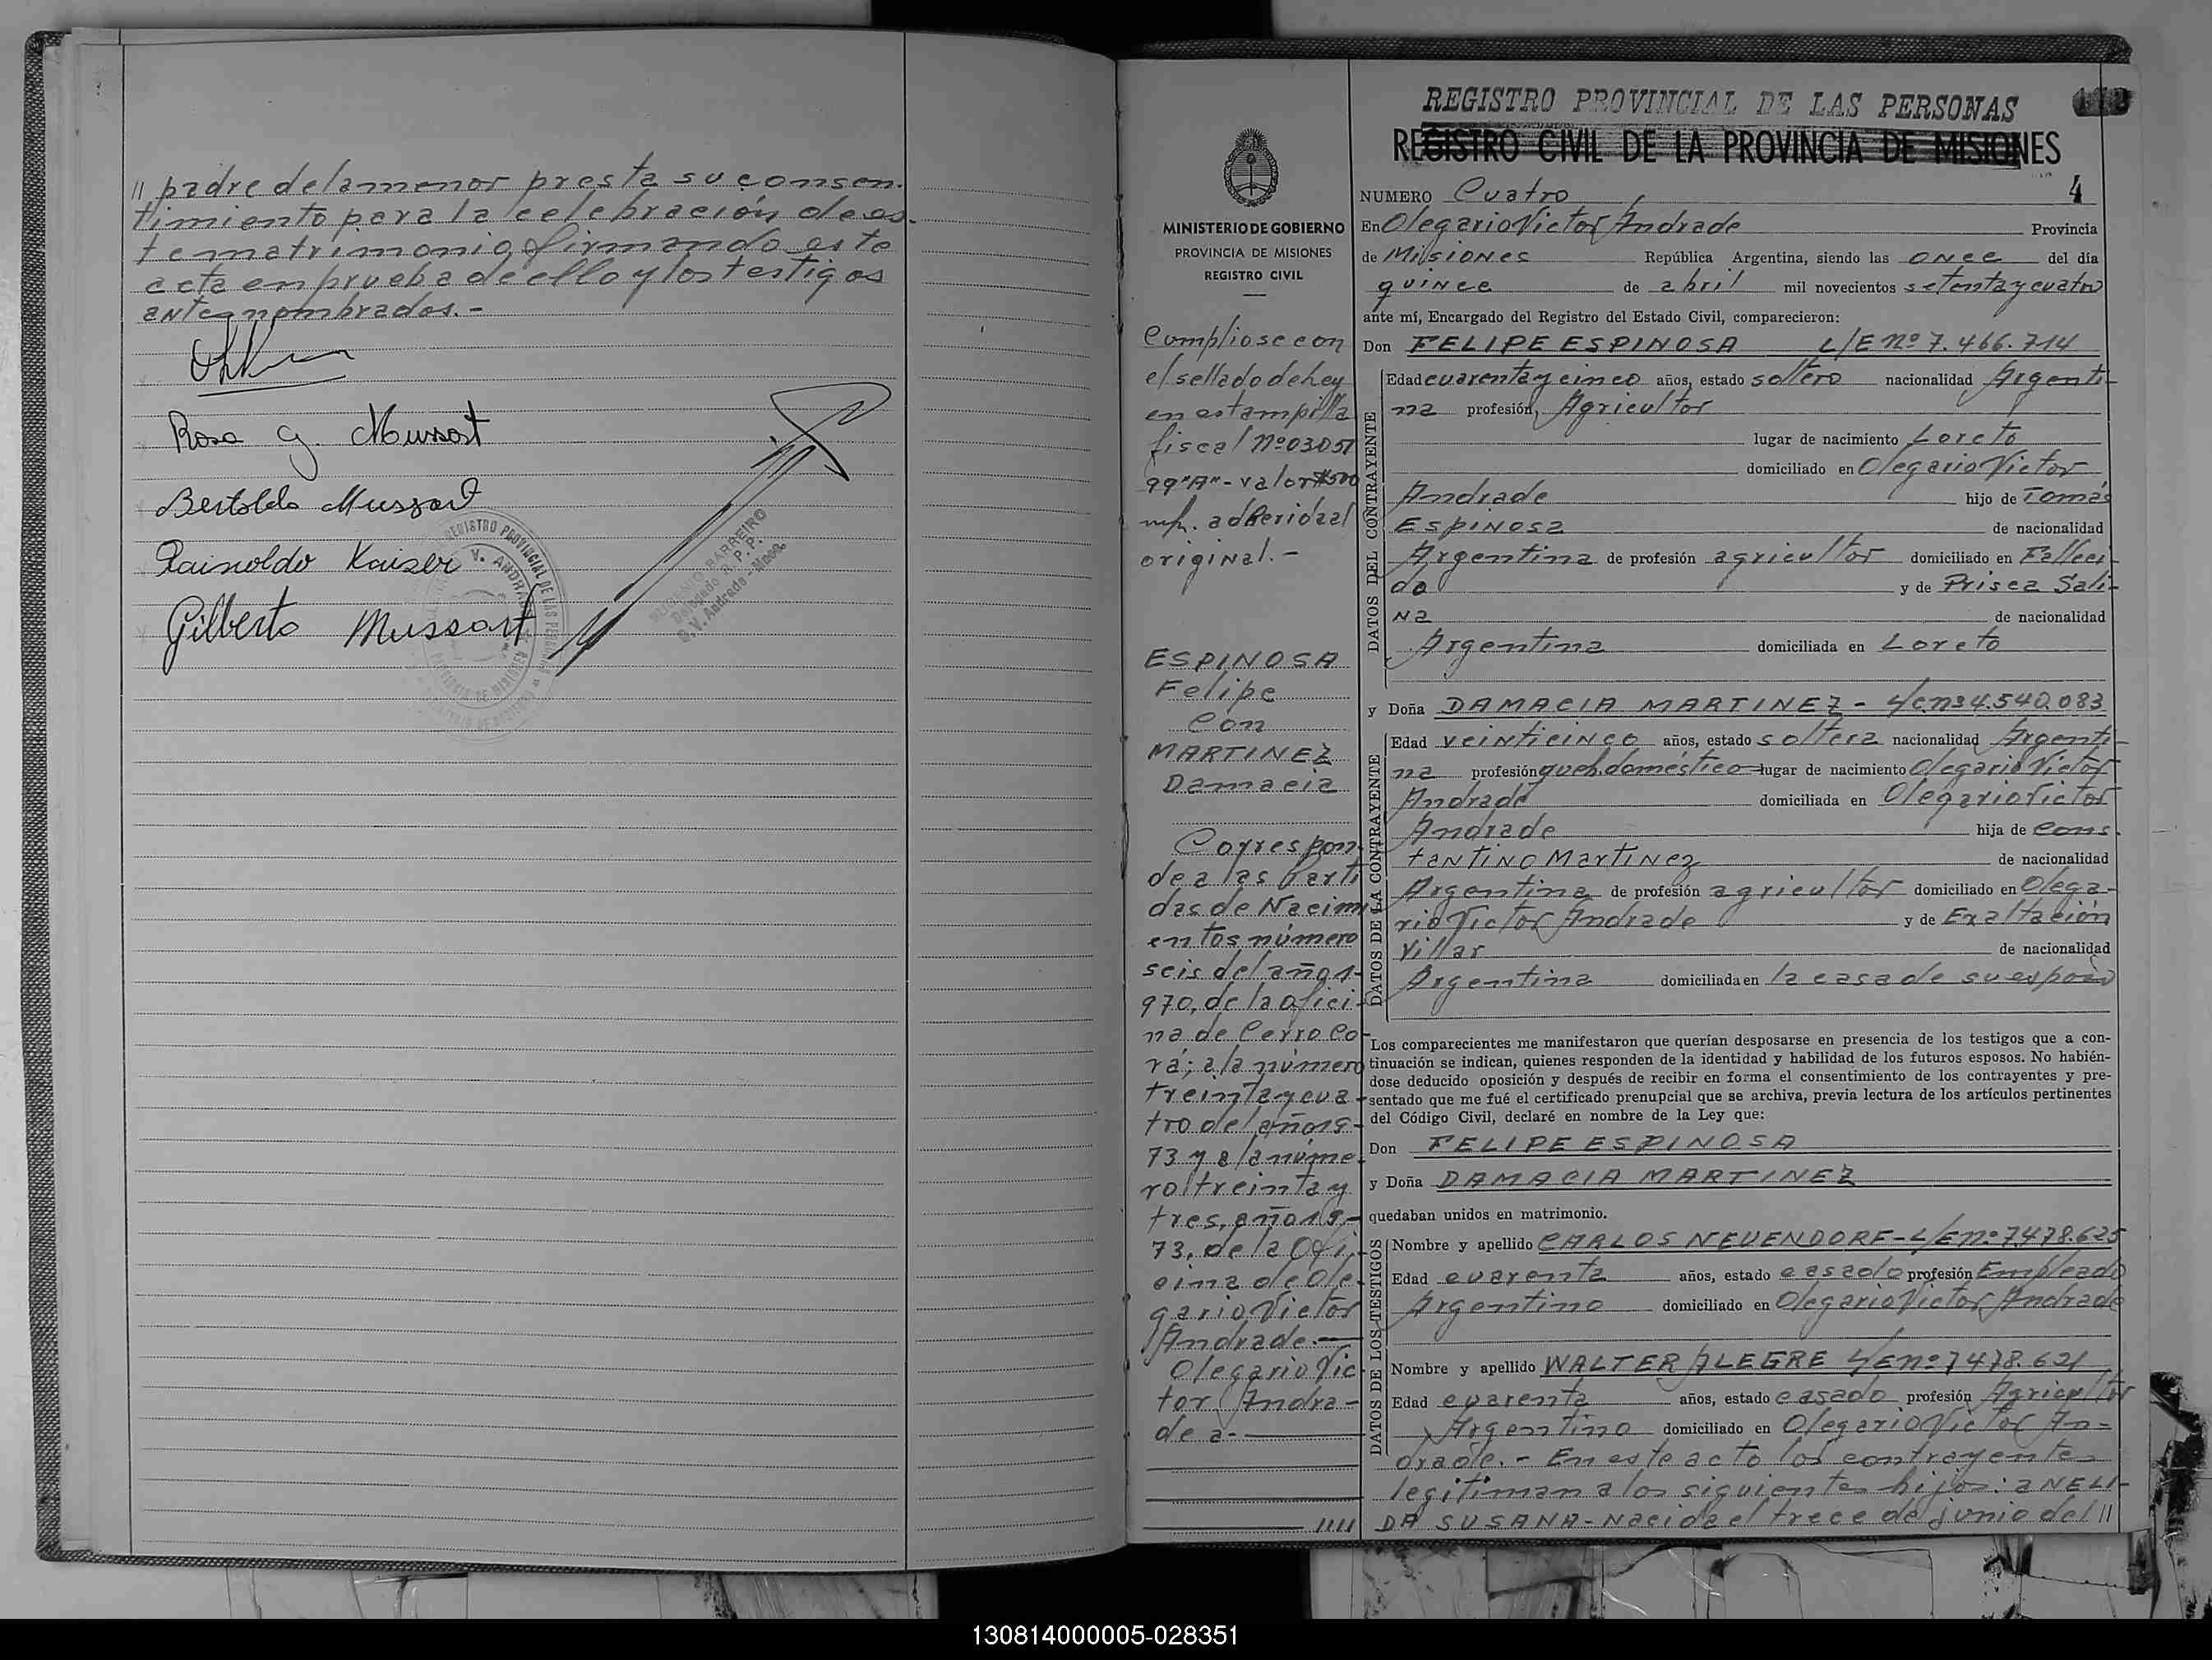 // padre de la menor presta su consen-
timiento para la celebración de es-
te matrimonio, firmando este
acta en prueba de ello y los testigos
antes nombrados.-
Rosa G. Mussart
Bertoldo Mussart
Rainoldo Kaiser
Gilberto Mussart
REGISTRO PROVINCIAL DE LAS PERSONAS
V. ANDRADE
BARREIRO
Delegado R.P.P.
O. V. Andrade - Mnes.
MINISTERIO DE GOBIERNO
PROVINCIA DE MISIONES
REGISTRO CIVIL
Cumpliose con
el sellado de Ley
en estampilla
fiscal nº 03051
99 "A" - valor $500
m/n. adherida al
original.-
ESPINOSA
Felipe
con
MARTINEZ
Damacia
Correspon-
de a las Parti
das de Nacimi
entos número
seis del año 1-
970, de la ofici-
na de Cerro Co-
rá; a la número
treinta y cua-
tro del año 19-
73 y a la núme-
ro treinta y
tres, año 19-
73, de la Ofi-
cina de Ole-
gario Victor
Andrade.-
Olegario Vic-
tor Andra-
de a.-
////
REGISTRO PROVINCIAL DE LAS PERSONAS
172
REGISTRO CIVIL DE LA PROVINCIA DE MISIONES
NUMERO Cuatro 4
En Olegario Victor Andrade Provincia
de Misiones República Argentina, siendo las once del día
quince de abril mil novecientos setenta y cuatro
ante mí, Encargado del Registro del Estado Civil, comparecieron:
Don FELIPE ESPINOSA L/E nº 7.466.714
DATOS DEL CONTRAYENTE
Edad cuarenta y cinco años, estado soltero nacionalidad Argenti-
na profesión, Agricultor
lugar de nacimiento Loreto
domiciliado en Olegario Victor
Andrade hijo de Tomás
Espinosa de nacionalidad
Argentina de profesión agricultor domiciliado en Falleci-
do y de Prisca Sali-
na de nacionalidad
Argentina domiciliada en Loreto
y Doña DAMACIA MARTINEZ - L/C nº 4.540.083
DATOS DE LA CONTRAYENTE
Edad veinticinco años, estado soltera nacionalidad Argenti-
na profesión queh. doméstico lugar de nacimiento Olegario Victor
Andrade domiciliada en Olegario Victor
Andrade hija de Cons-
tantino Martinez de nacionalidad
Argentina de profesión agricultor domiciliado en Olega-
rio Victor Andrade y de Exaltación
Villar de nacionalidad
Argentina domiciliada en la casa de su esposo
Los comparecientes me manifestaron que querían desposarse en presencia de los testigos que a con-
tinuación se indican, quienes responden de la identidad y habilidad de los futuros esposos. No habién-
dose deducido oposición y después de recibir en forma el consentimiento de los contrayentes y pre-
sentado que me fué el certificado prenupcial que se archiva, previa lectura de los artículos pertinentes
del Código Civil, declaré en nombre de la Ley que:
Don FELIPE ESPINOSA
y Doña DAMACIA MARTINEZ
quedaban unidos en matrimonio.
DATOS DE LOS TESTIGOS
Nombre y apellido CARLOS NEUENDORF - L/E nº 7.478.625
Edad cuarenta años, estado casado profesión Empleado
Argentino domiciliado en Olegario Victor Andrade
Nombre y apellido WALTER ALEGRE L/E nº 7478.621
Edad cuarenta años, estado casado profesión Agricultor
Argentino domiciliado en Olegario Victor An-
drade.- En este acto los contrayentes
legitiman a los siguientes hijos: a NELI-
DA SUSANA - Nacida el trece de junio del //
130814000005-028351